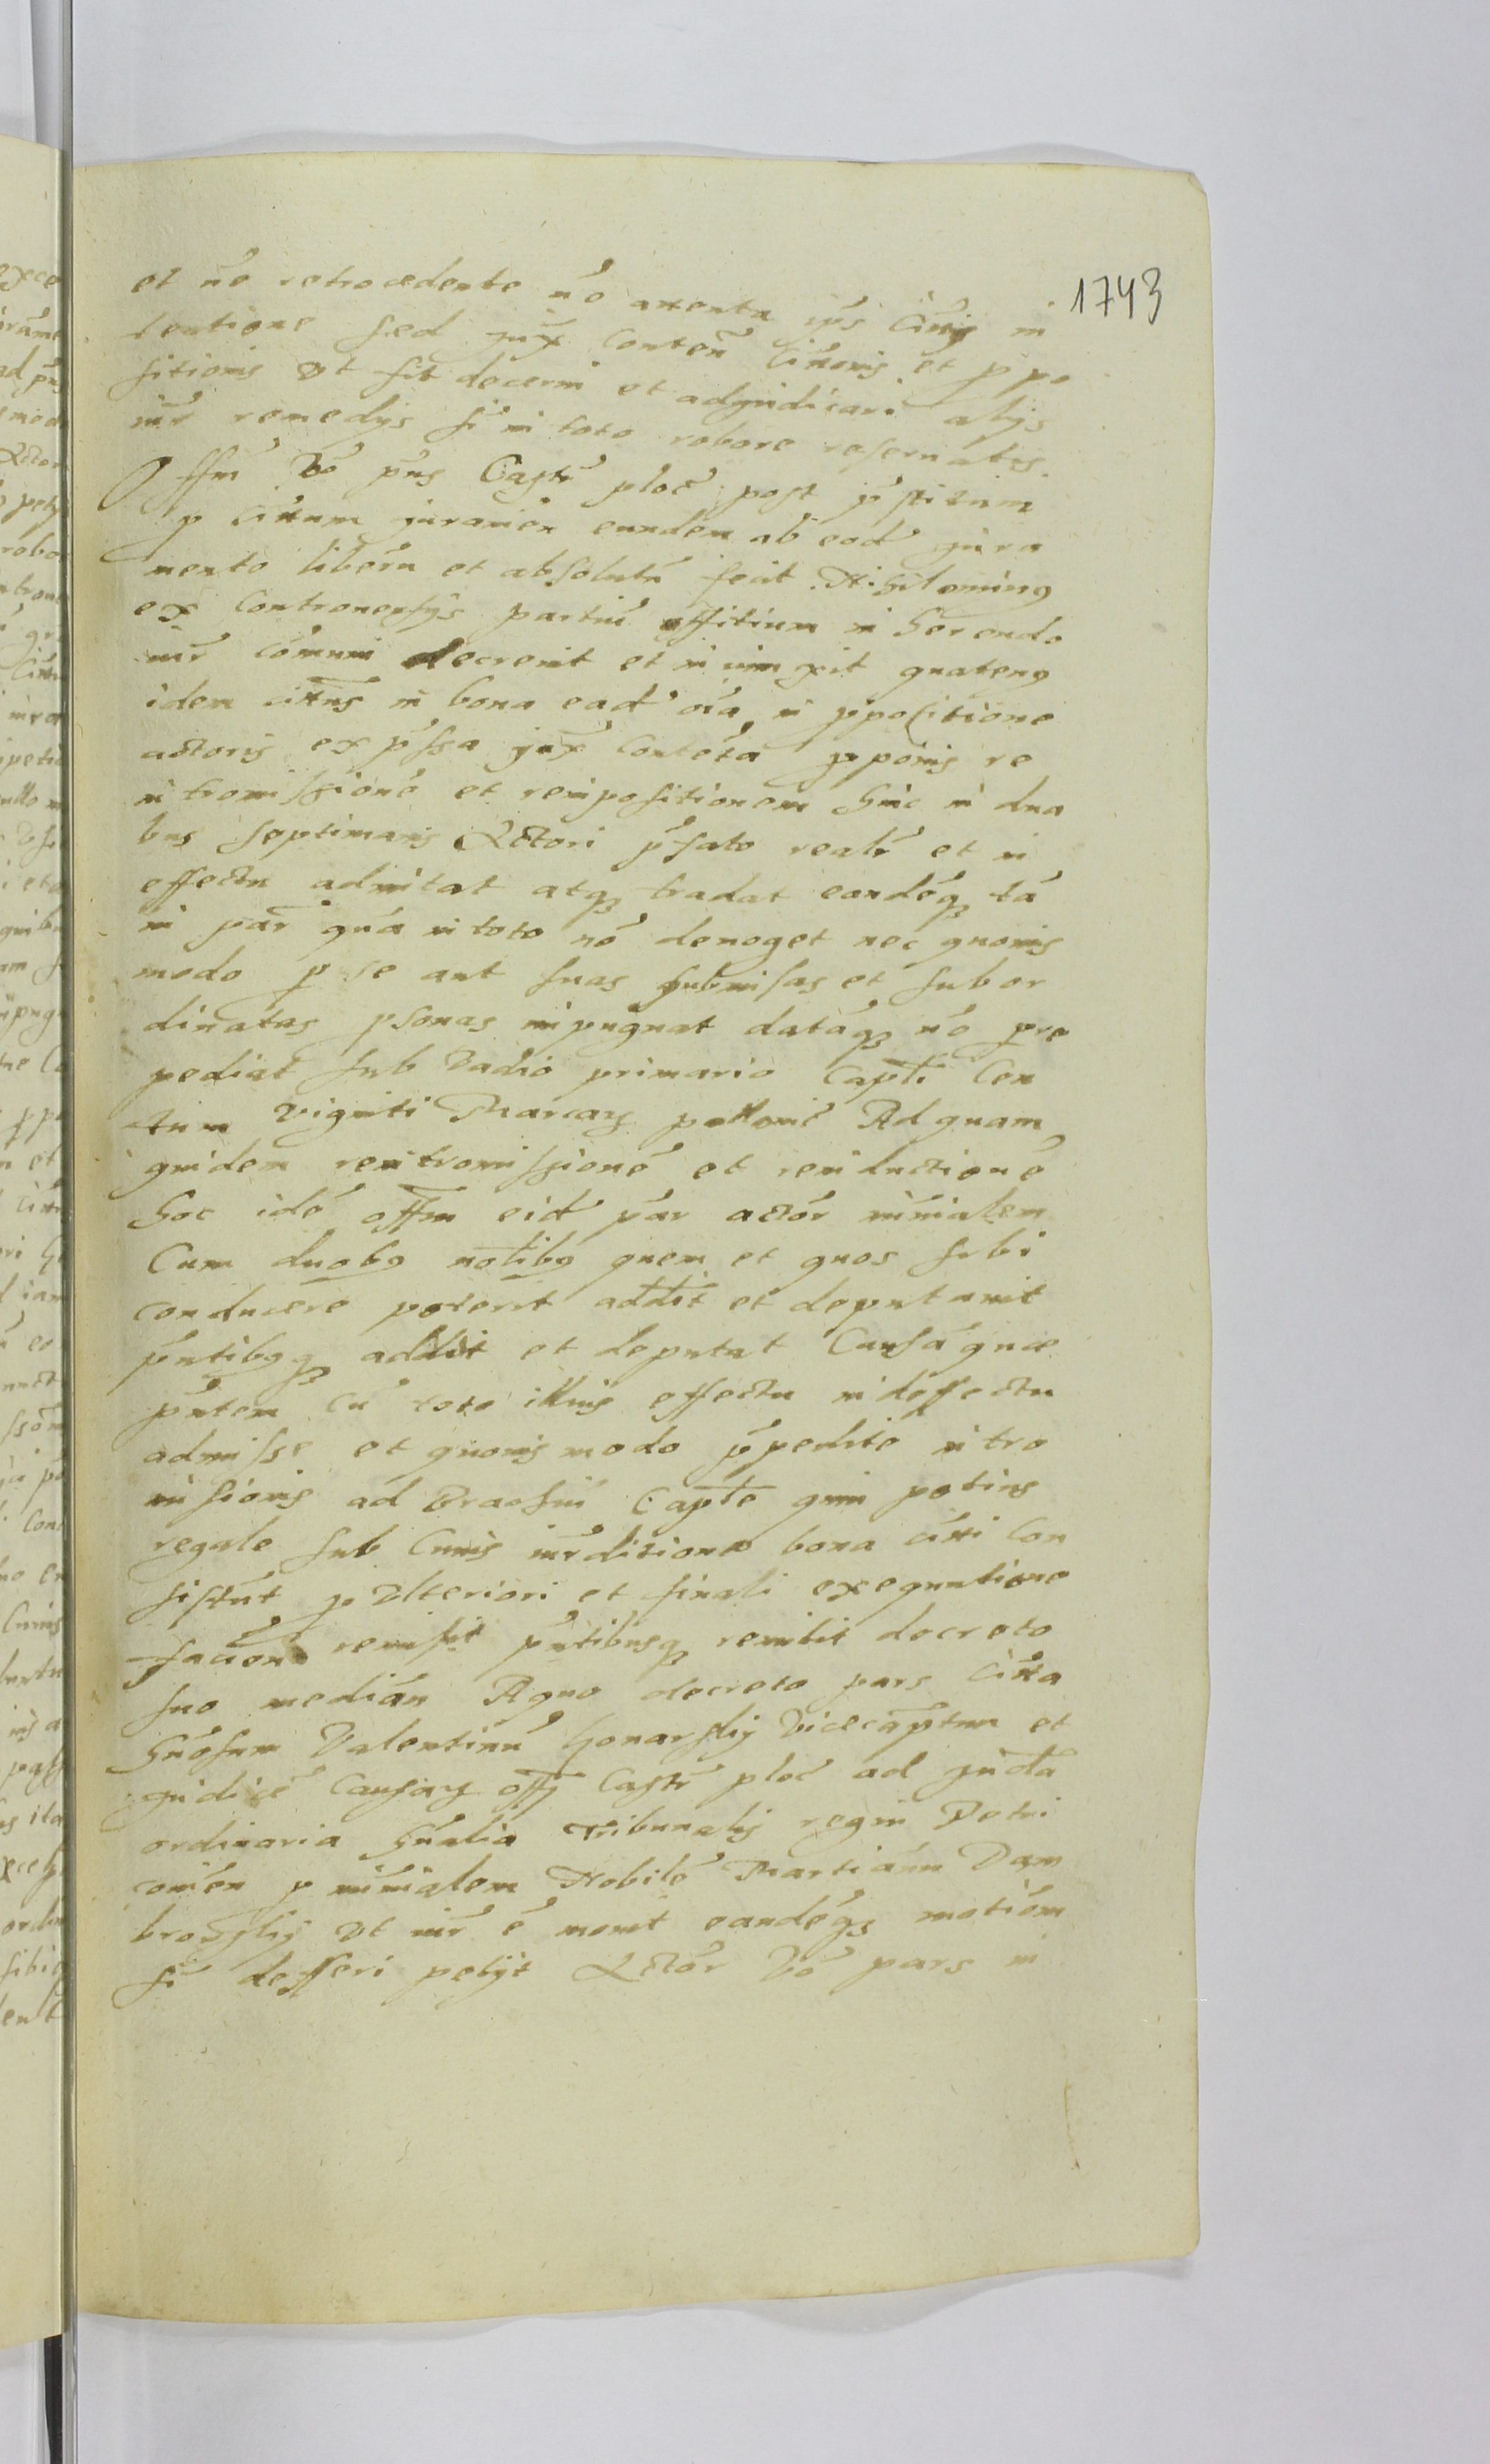 1743
et nō retrocedente nō attenta ips citti in
tentione sed jux conten citonis et ppo
sitionis ut sit decerni et adjudicari alijs
iur remedijs si in toto robore reservatis.
Offm vō pns Castr ploc post pstitum
p cittum juramen eundem ab eod jura
mento liberu et absolutu fecit. Nihilominus
ex controversijs partiu offitium in herendo
iur cōmuni decrevit et iniunxit quatenus
idem cittus in bona ead oīa in ppositione
actoris expssa jux contēta pponis re
intromissionē et reimpositionem hinc in dua
bus septimanis Actori pfato realr et in
effectu admitat atq tradat eandēq tā
in par quā in toto nō deneget nec quovis
modo p se aut suas submisas et subor
dinatas psonas inpugnat datāq nō pre
pediat sub vadio primario Capti Cen
tum viginti Marcarum pollonic Ad quam
quidem reintromissionē et reinductionē
hoc idē offm eid par actor minialem
Cum duobus notlibus quem et quos sibi
conducere poterit addit et deputavit
pntibusq addit et deputat Causāque
pntem cū toto illius effectu in deffectu
admisse et quovis modo ppedite intro
misionis ad Brachiū Captle quin potius
regale sub Cuius iurditione bona citti con
sistūt p ulteriori et finali exequutione
remisit pntibusq remitit decreto
suo median A quo decreto pars citta
Gnosum Valentinū Gonarskij Vicecaptum et
judicē causarum offy Castr ploc ad juda
ordinaria Gnalia Tribunalis regni Petri
covien p minialem Nobilē Martianu Dam
browskij ut iur ē movit eandēq motiōm
si defferi petijt Actor vō pars in